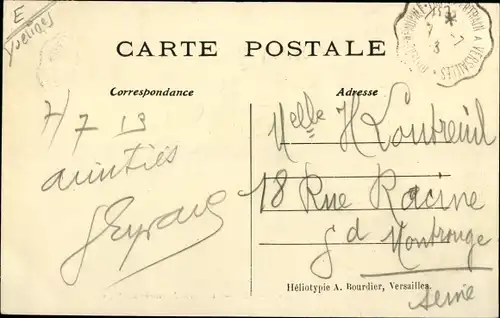 E
Yvelines
CARTE POSTALE
Correspondance
Adresse
7/7 13
amitiés
Melle H Loutreuil
18 Rue Racine
Gd Montrouge
Seine
Héliotypie A. Bourdier, Versailles.
A VERSAILLES